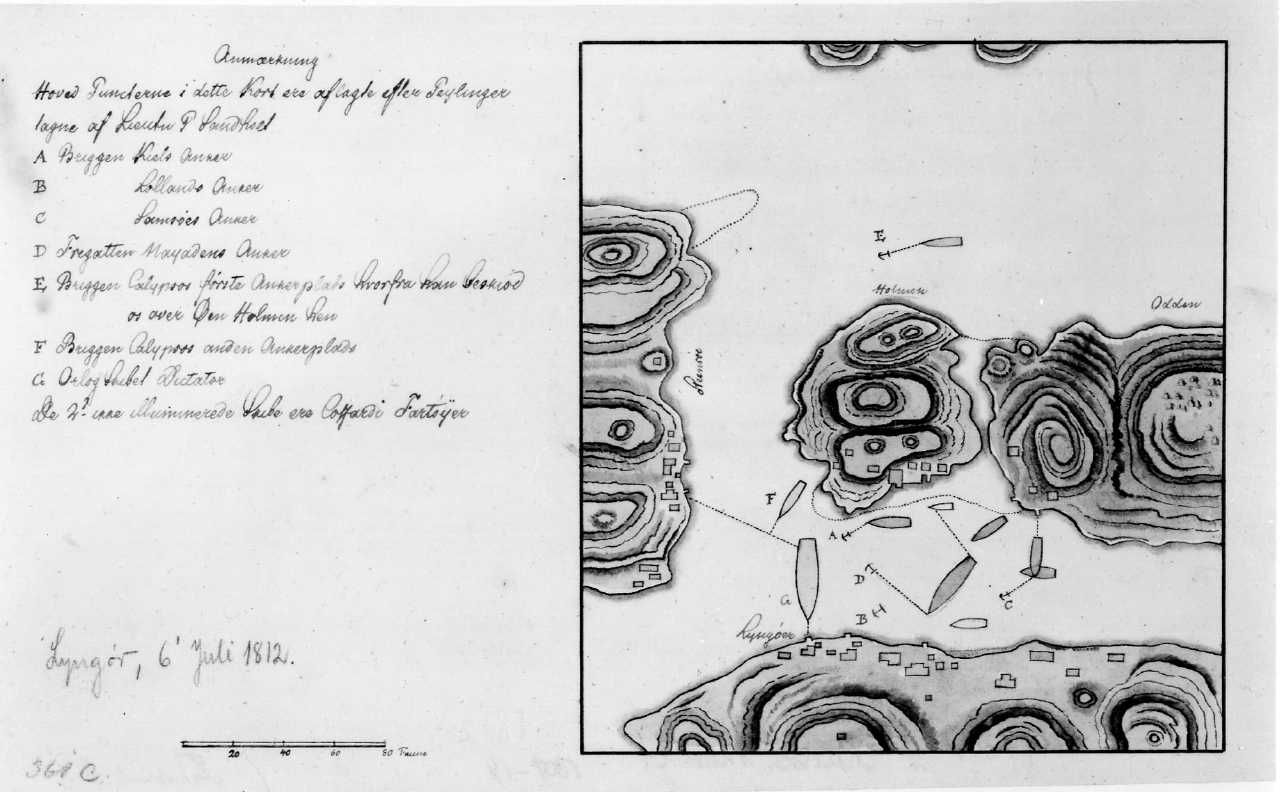 Anmærkning
Hoved Puncterne i dette Kort ere aflagte efter Peylinger
tagne af Lieutn P Sandholt
A Briggen Kiels Anker
B Lollands Anker
C Samsöes Anker
D Fregatten Nayadens Anker
E Briggen Calypsos förste Ankerplads hvorfra han beskiöd
os over Öen Holmen hen
F Briggen Calypsos anden Ankerplads
G Orlogskibet Dictator
De 2de ikke illuminerede Skibe ere Coffardi Fartöÿer
Lyngör, 6' Juli 1812.
20 40 60 80 Favne
368 C.
E
Holmen
Odden
F
A
D
G
B
C
Lyngöer